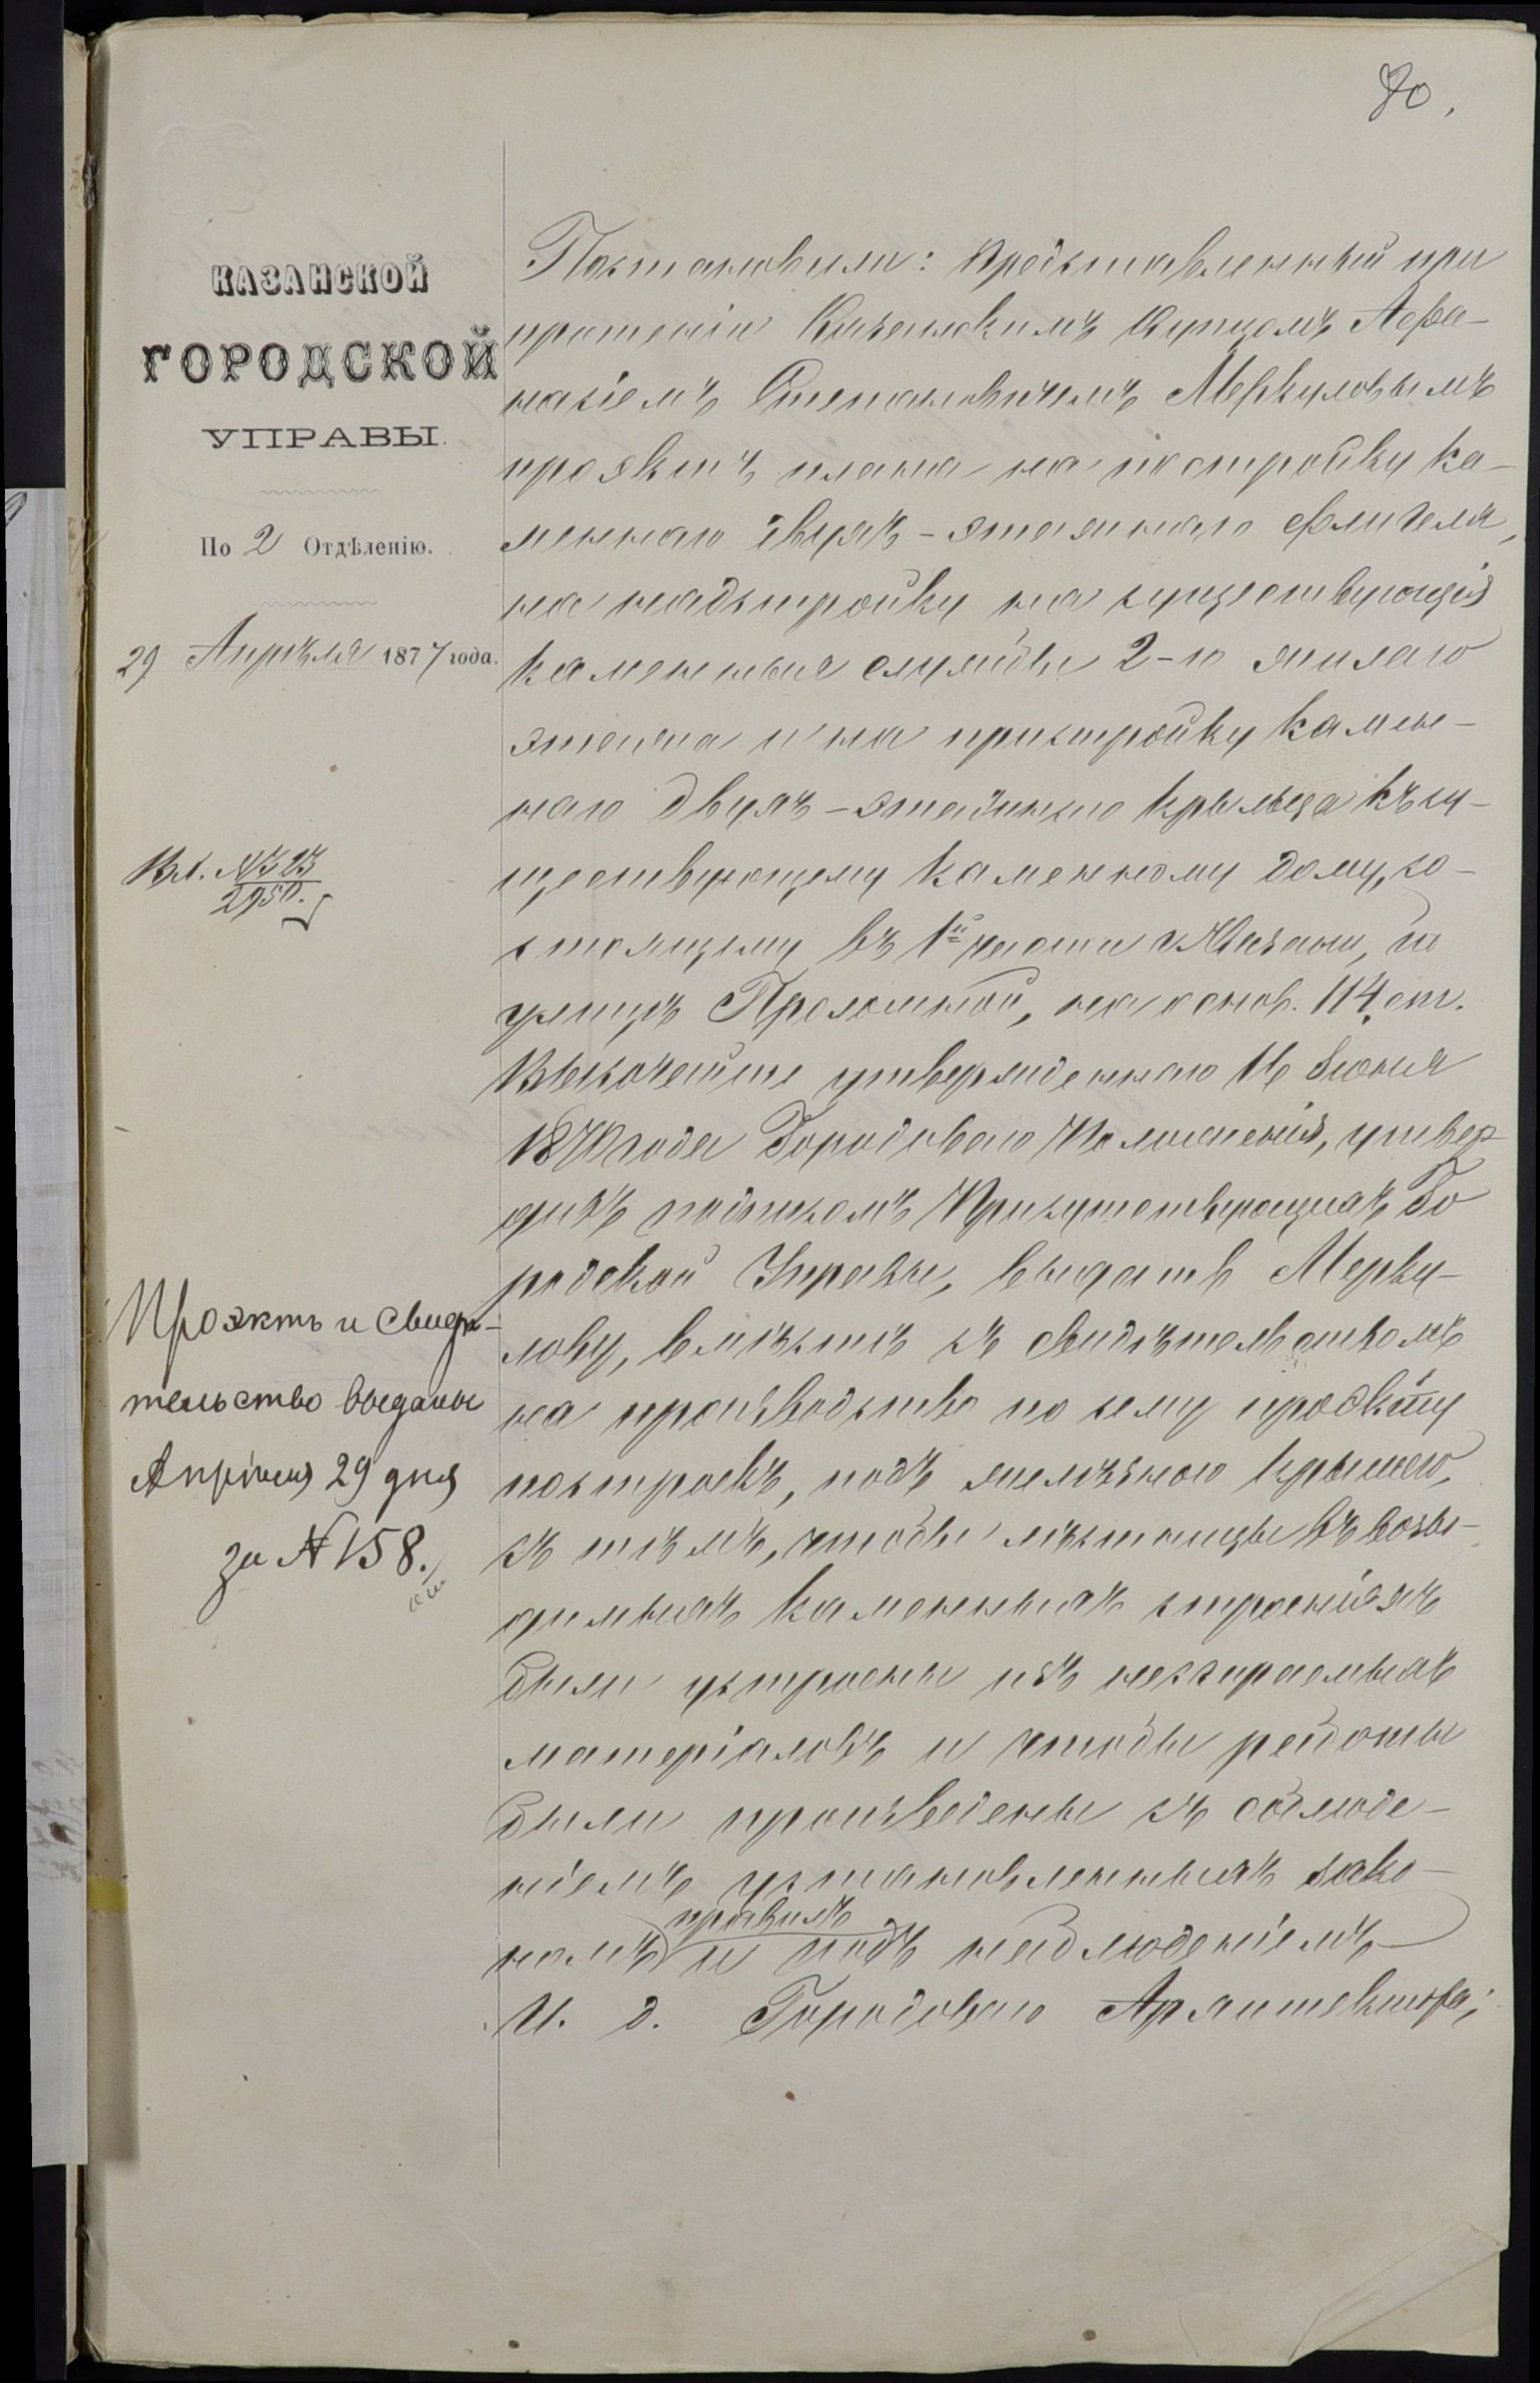 80.
КАЗАНСКОЙ
ГОРОДСКОЙ
УПРАВЫ.
По 2 Отдѣленію.
29 Апрѣля 1877 года.
Вх. № 323
2950.
Проэктъ и свидѣ-
тельство выданы
Апрѣля 29 дня
за № 158.
Постановили: представленный при
прошеніи Казанскимъ Купцомъ Афа-
насіемъ Степановичемъ Меркуловымъ
проэктъ плана на постройку ка-
меннаго двухъ-этажнаго флигеля,
на надстройку на существующія
каменныя службы 2-го жилаго
этажа и на пристройку камен-
наго двухъ-этажнаго крыльца къ су-
ществующему каменному дому, со-
стоящему въ 1й части г. Казани, по
улицѣ Проломной, на основ. 114 ст.
Высочайше утвержденнаго 16 Іюня
1870 года Городоваго Положенія, утвер-
дивъ подписомъ Присутствующихъ Го
родской Управы, выдать Мерку-
лову, вмѣстѣ съ свидѣтельствомъ
на производство по сему проэкту
построекъ, подъ желѣзною крышею,
съ тѣмъ, чтобы лѣстницы въ возво-
димыхъ каменныхъ строеніяхъ
были устроены изъ несгораемыхъ
матеріаловъ и чтобы работы
были произведены съ соблюде-
ніемъ установленныхъ зако-
номъ правилъ и подъ наблюденіемъ
И. д. Городоваго Архитектора;